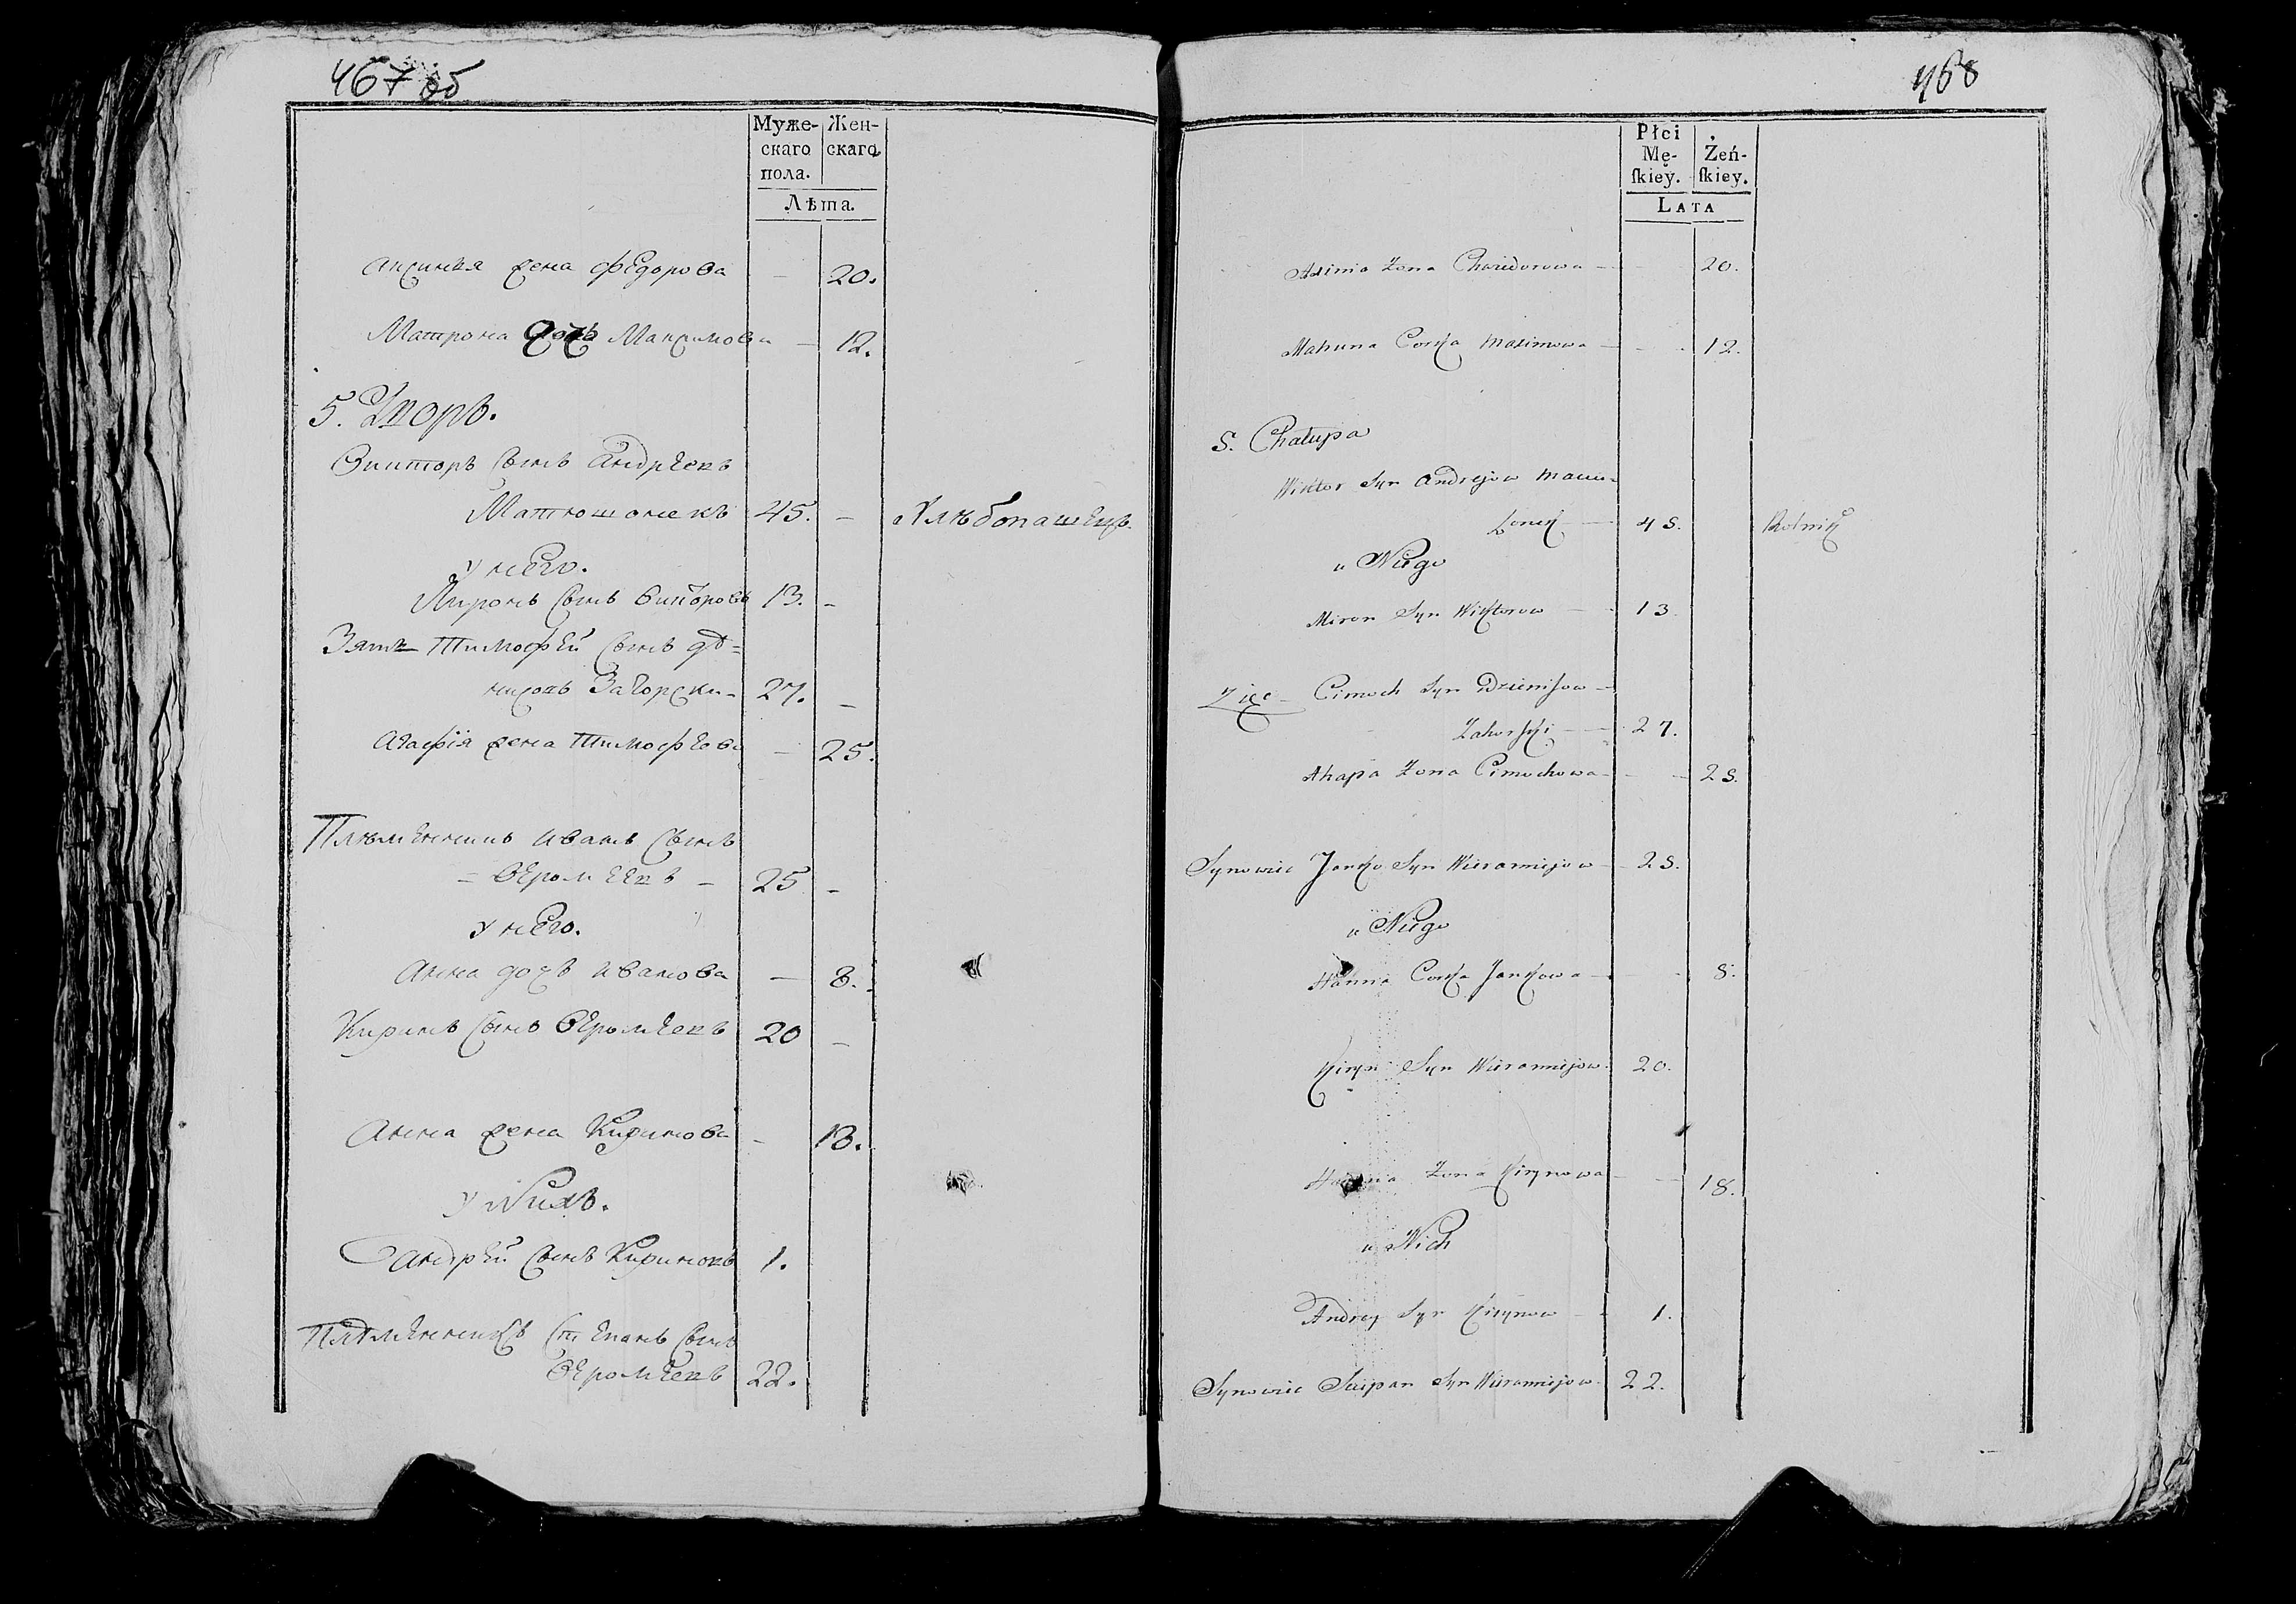 467 об
Муже-
скаго
пола.
Жен-
скаго
Лѣта.
Аксинья жена Федорова — 20.
Матрона дочь Максимова — 12.
5. Дворъ.
Викторъ сынъ Андреевъ
Матюшонекъ 45. — Хлѣбопашецъ.
у него.
Миронъ сынъ Викторовъ 13. —
Зять Тимофей сынъ де=
нисовъ Загорски- 27. —
Агафія жена Тимофеева — 25.
Племенникъ иванъ сынъ
= Веромеевъ — 25 —
у него.
Анна дочь иванова — 8.
Киринъ сынъ Веромеевъ 20 —
Анна жена Киринова - 18.
у Нихъ.
Андрей сынъ Кириновъ 1.
Племенникъ Степанъ сынъ
Веромеевъ 22.
468
Płci
Mę-
ſkiey.
Żeń-
ſkiey.
LATA
Axinia Zona Chwiedorowa — 20.
Corka Maximowa — 12.
5. Chałupa
Wiktor Syn Andrejow Maciu-
zonek — 45. Rolnik
u Niego
Miron Syn Wiktorow — 13
Zięc Cimoch Syn Dzienisow —
Zahorſki — 27.
Ahapa Zona Cimochowa — 25.
Synowiec Janko Syn Wieramiejow — 25.
u Niego
Hanna Corka Jankowa — 8.
Kiryn Syn Wieramiejow. 20.
Hanna Zona Kirynowa — 18.
u Nich
Andrey Syn Kirynow — 1.
Synowiec Sciepan Syn Wieramiejow. 22.